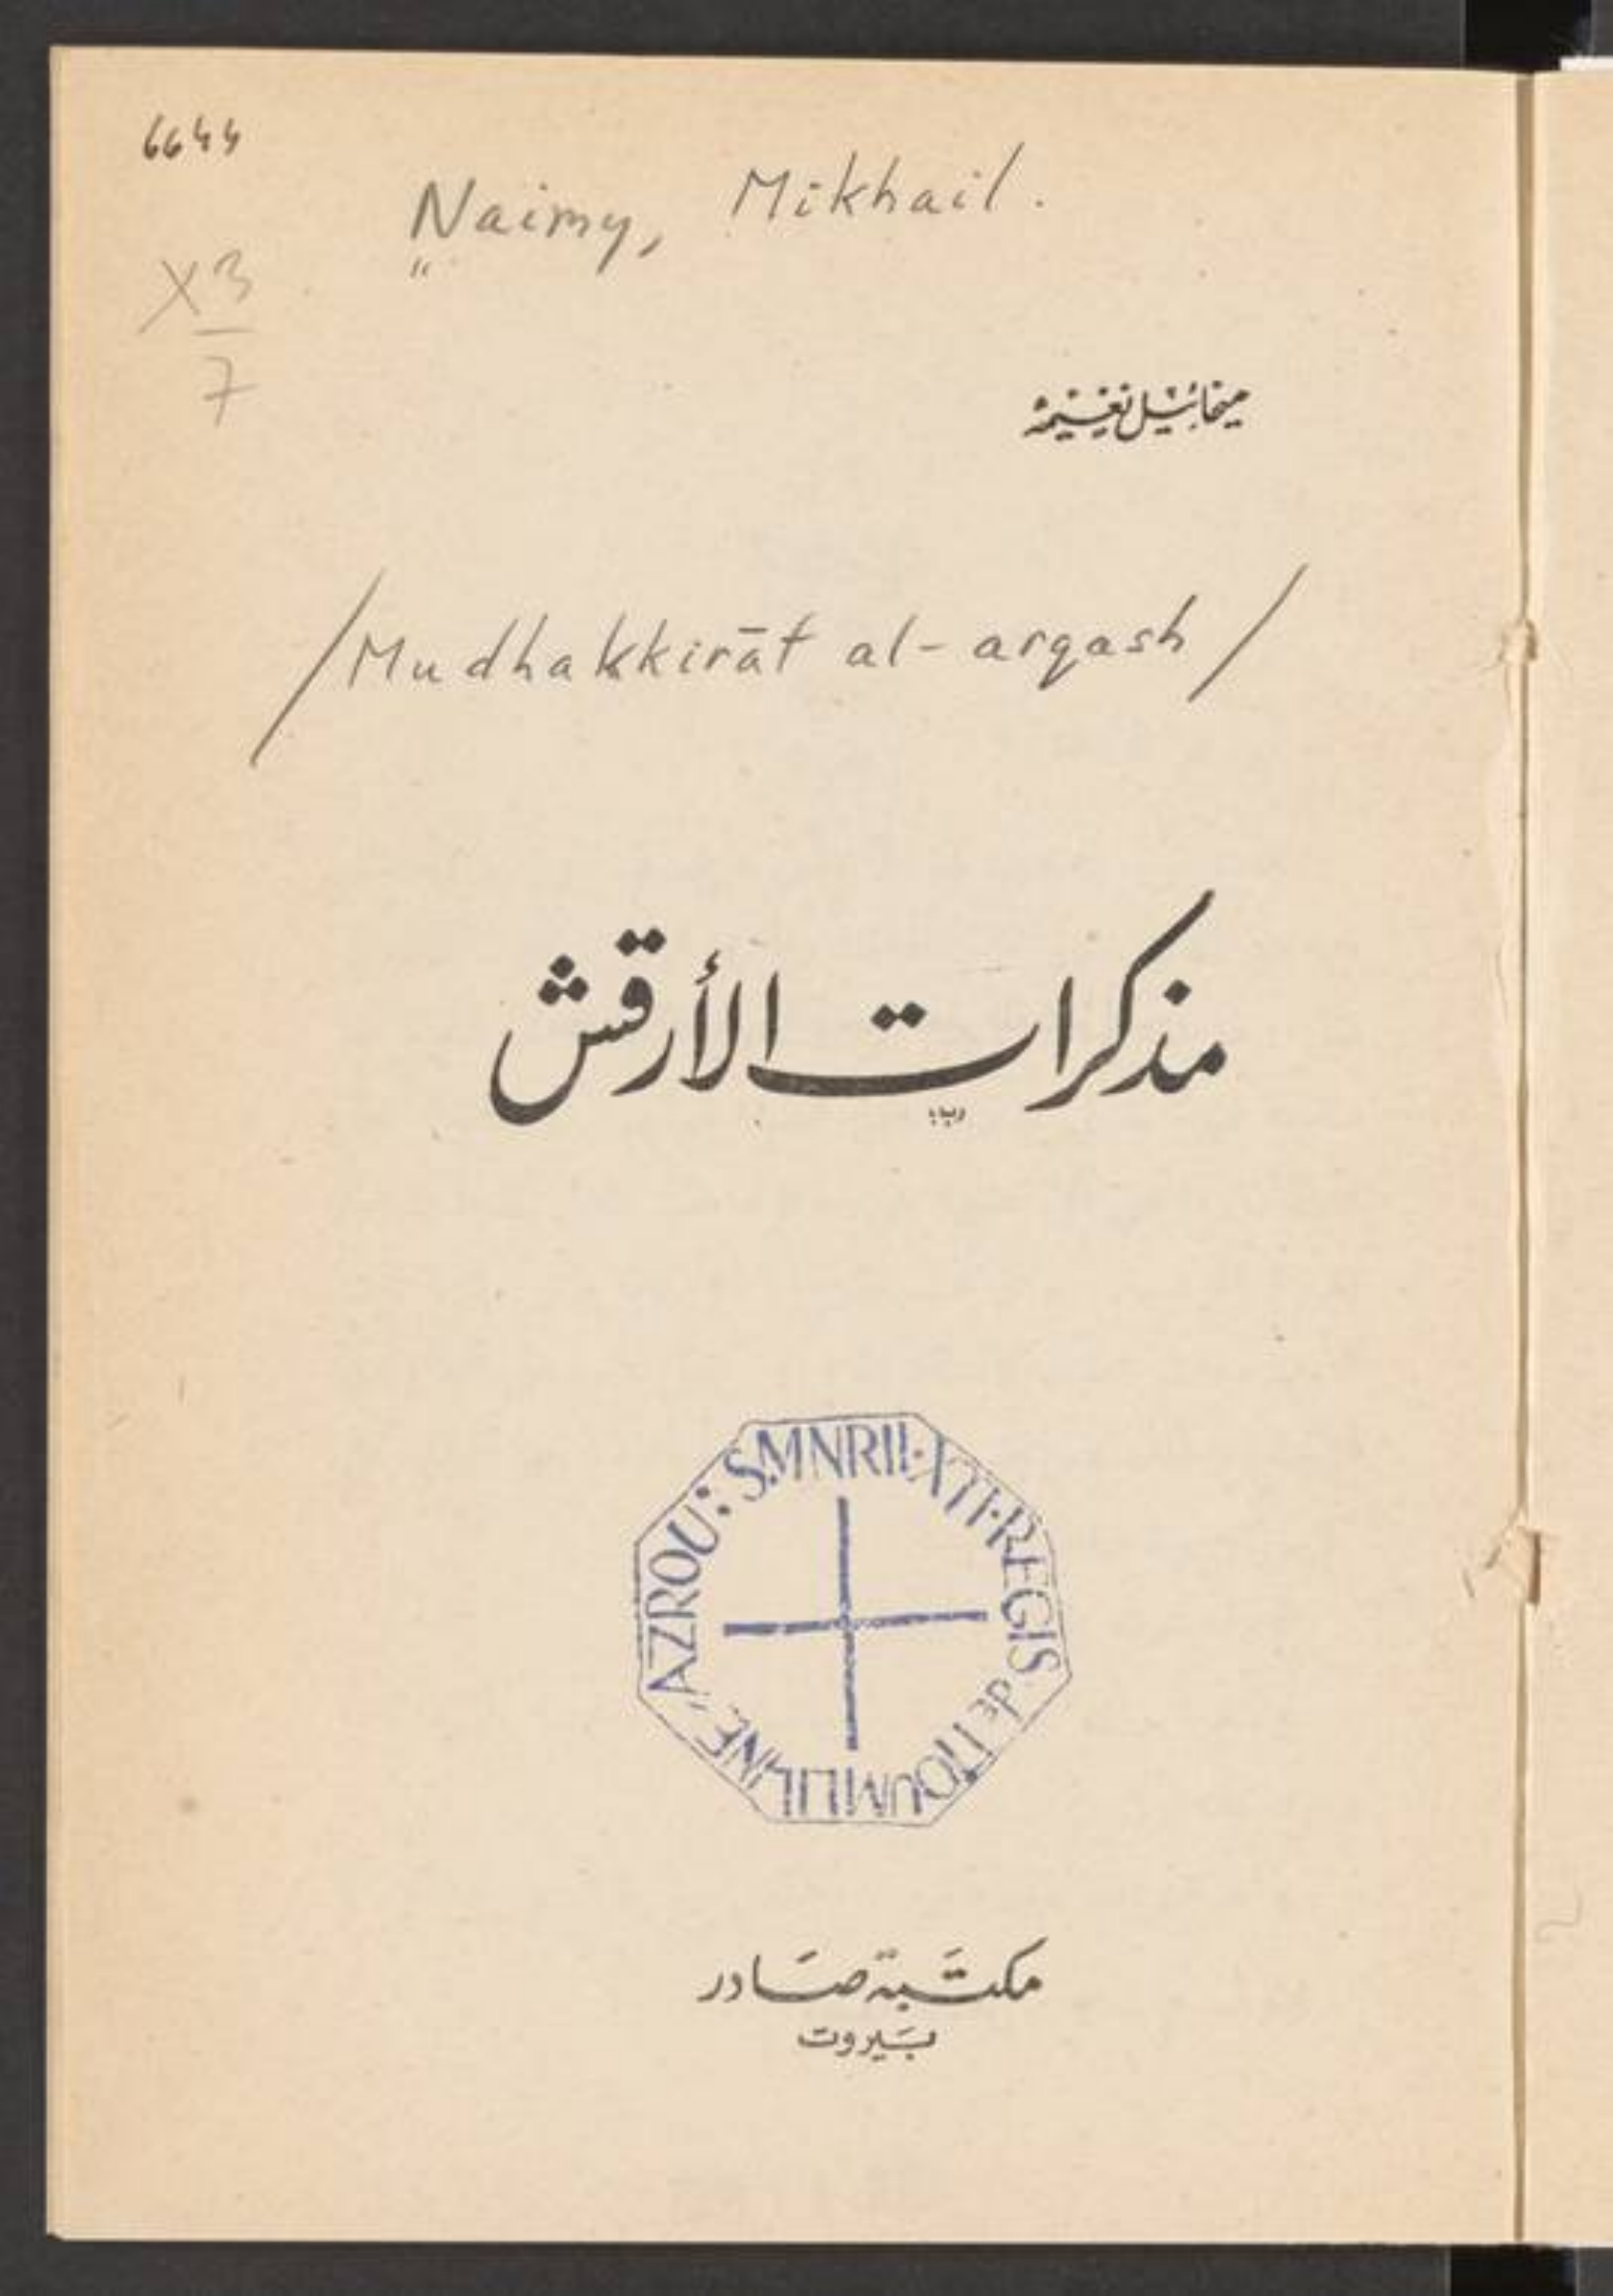 6644
Naimy, Mikhail.
X3
7
ميخائيل نعيمة
/Mudhakkirāt al-arqash/
مذكرات الأرقش
AZROU: S.MNRII·XTI·REGIS de TIOUMLILINE"
مكتَبة صَادر
بَيروت